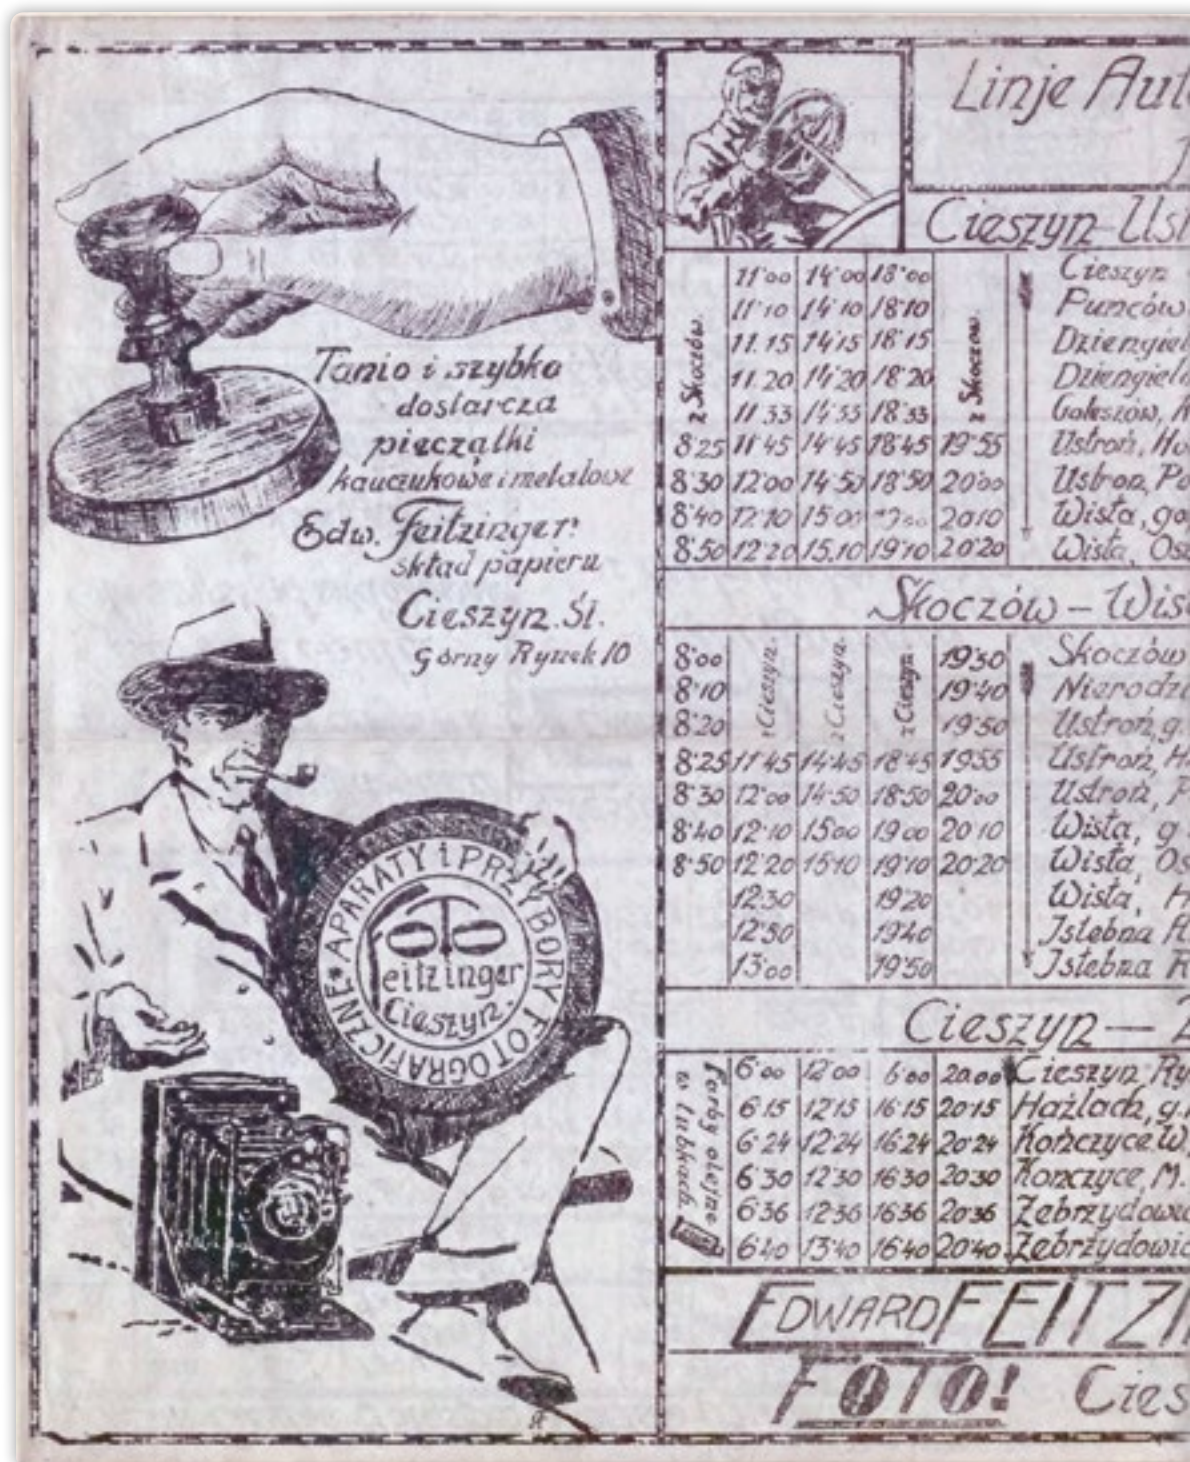 Tanio i szybko
dostarcza
pieczątki
kauczukowe i metalowe
Edw. Feitzinger
skład papieru
Cieszyn. Śl.
Górny Rynek 10
APARATY i PRZYBORY FOTOGRAFICZNE
FOTO
Feitzinger
Cieszyn.
Linje Aut
Cieszyn - Ust
z Skoczów.
z Skoczow.
11·00 14·00 18·00 Cieszyn
11·10 14·10 18·10 Puńców
11.15 14·15 18·15 Dziengiel
11.20 14·20 18·20 Dziengiel
11·33 14·33 18·33 Goleszów,
8·25 11·45 14·45 18·45 19·55 Ustroń, Ho
8·30 12·00 14·50 18·50 20·00 Ustron, Po
8·40 12·10 15·00 20·10 Wisła, go
8·50 12·20 15.10 19·10 20·20 Wisła, Os
Skoczów – Wis
z Cieszyn.
z Cieszyn.
z Cieszyn.
8·00 19·30 Skoczów
8·10 19·40 Nierodzi
8·20 19·50 Ustroń, g.
8·25 11·45 14·45 18·45 19·55 Ustroń, H
8·30 12·00 14·50 18·50 20·00 Ustroń, P
8·40 12·10 15·00 19·00 20·10 Wisła, g
8·50 12·20 15·10 19·10 20·20 Wisła, Os
12·30 19·20 Wisła, H
12·50 19·40 Istebna
13·00 19·50 Istebna
Cieszyn —
Farby olejne
w tubkach.
6·00 12·00 6·00 20.00 Cieszyn Ry
6·15 12·15 16·15 20·15 Hażlach, g.
6·24 12·24 16·24 20·24 Kończyce W.
6·30 12·30 16·30 20·30 Konczyce, M.
6·36 12·36 16·36 20·36 Zebrzydowic
6·40 13·40 16·40 20·40 Zebrzydowic
EDWARD FEITZI
FOTO! Cies